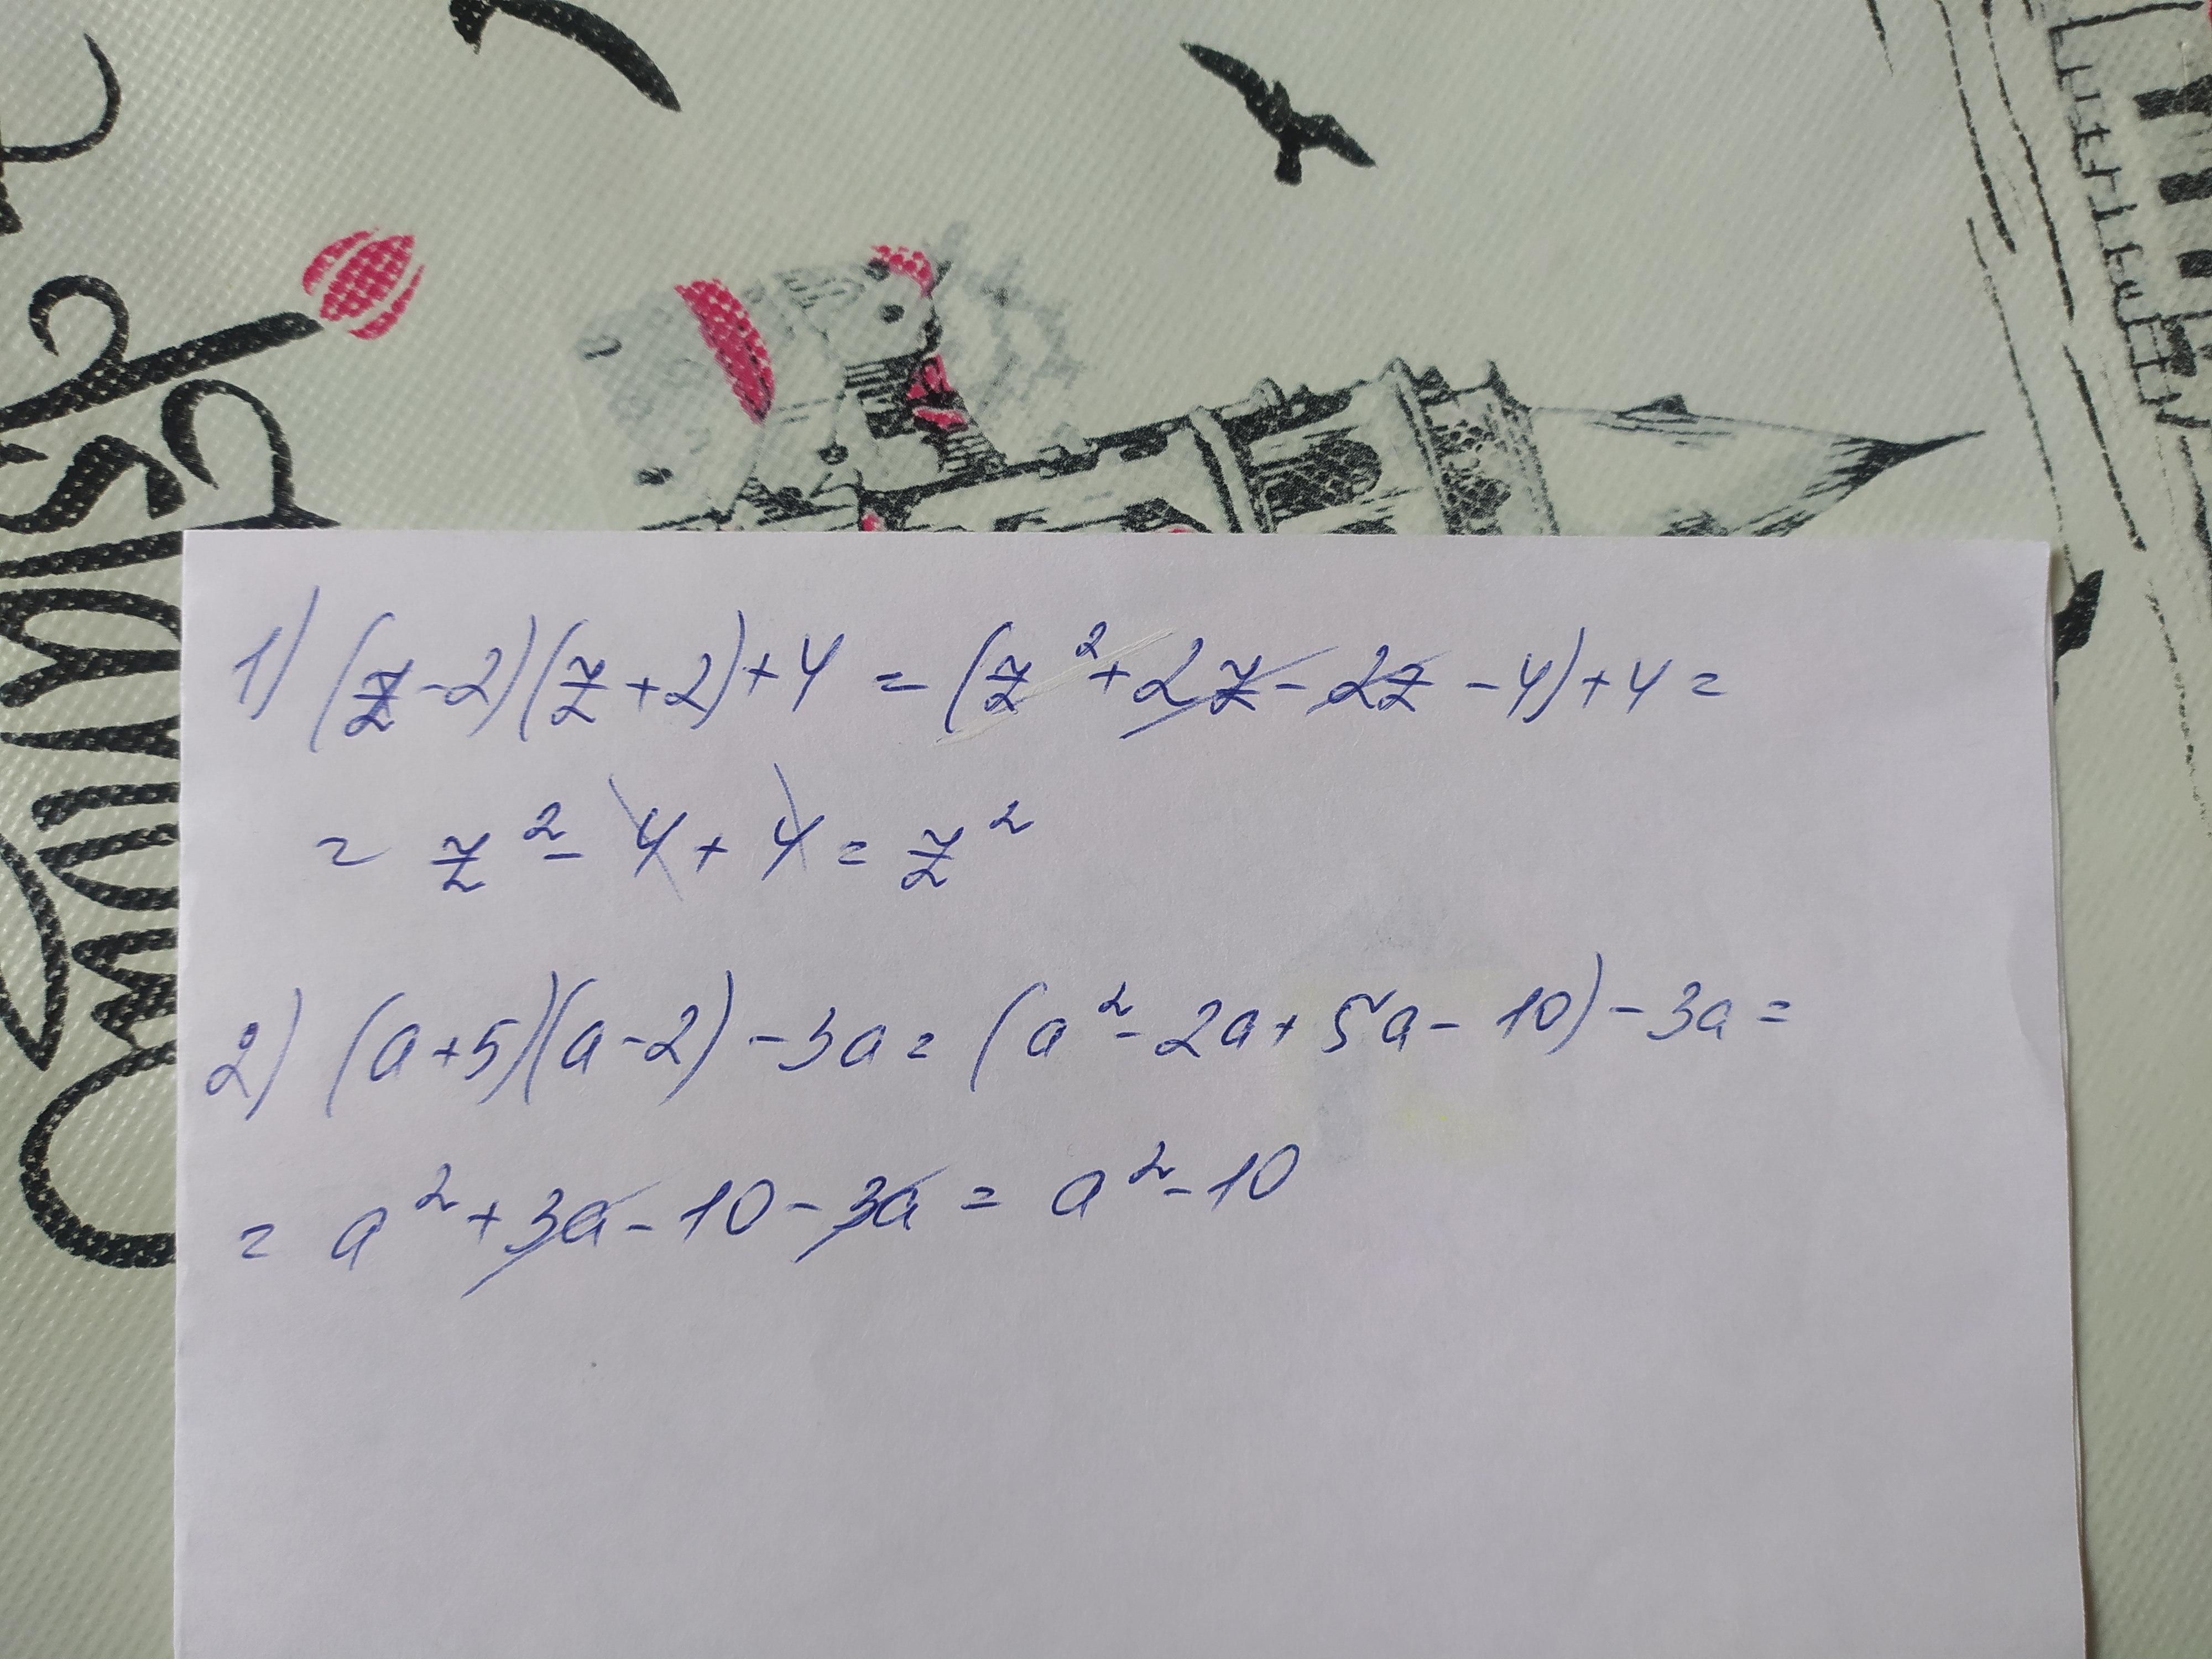 1) (z-2)(z+2)+4 = (z²+2z-2z-4)+4=
= z²-4+4=z²
2) (a+5)(a-2)-3a= (a²-2a+5a-10)-3a=
= a²+3a-10-3a= a²-10